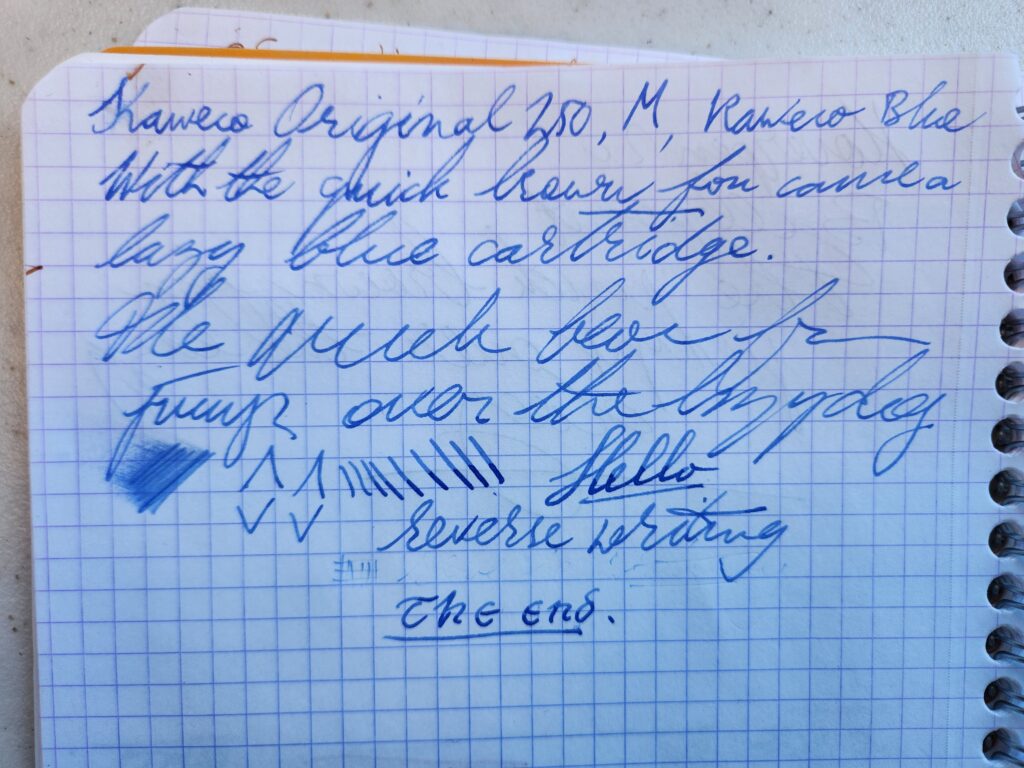 Kaweco Original 250, M, Kaweco Blue
With the quick brown fox came a
lazy blue cartridge.
The quick brow fox
jumps over the lazy dog
Hello
reverse writing
The end.